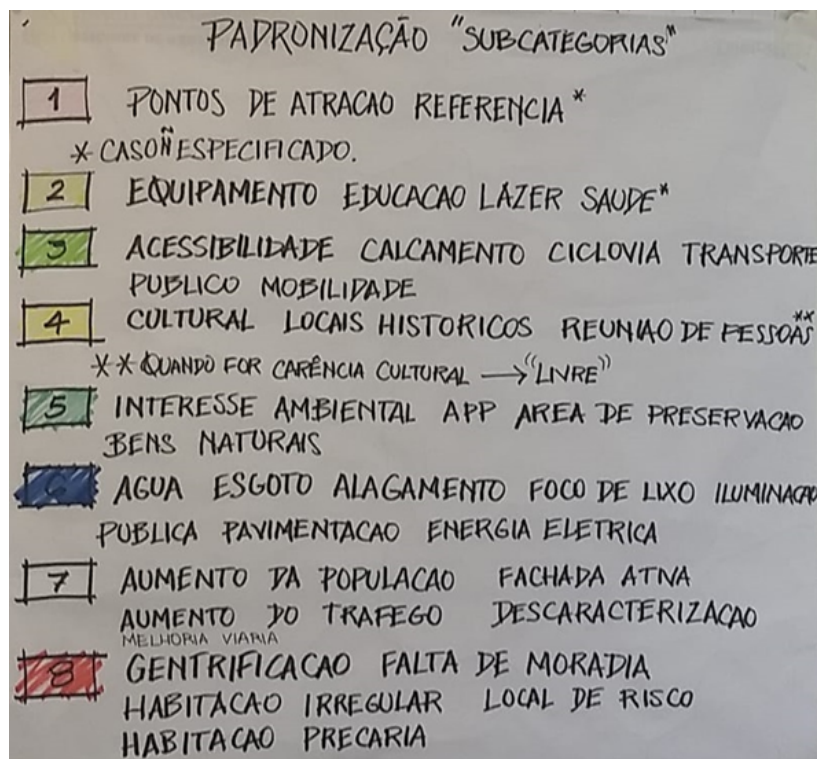 PADRONIZAÇÃO "SUBCATEGORIAS"
1 PONTOS DE ATRACAO REFERENCIA*
* CASO Ñ ESPECIFICADO.
2 EQUIPAMENTO EDUCACAO LAZER SAUDE*
3 ACESSIBILIDADE CALCAMENTO CICLOVIA TRANSPORTE
PUBLICO MOBILIDADE
4 CULTURAL LOCAIS HISTORICOS REUNIAO DE PESSOAS**
** QUANDO FOR CARÊNCIA CULTURAL → "LIVRE"
5 INTERESSE AMBIENTAL APP AREA DE PRESERVACAO
BENS NATURAIS
6 AGUA ESGOTO ALAGAMENTO FOCO DE LIXO ILUMINACAO
PUBLICA PAVIMENTACAO ENERGIA ELETRICA
7 AUMENTO DA POPULACAO FACHADA ATIVA
AUMENTO DO TRAFEGO DESCARACTERIZACAO
MELHORIA VIARIA
8 GENTRIFICACAO FALTA DE MORADIA
HABITACAO IRREGULAR LOCAL DE RISCO
HABITACAO PRECARIA